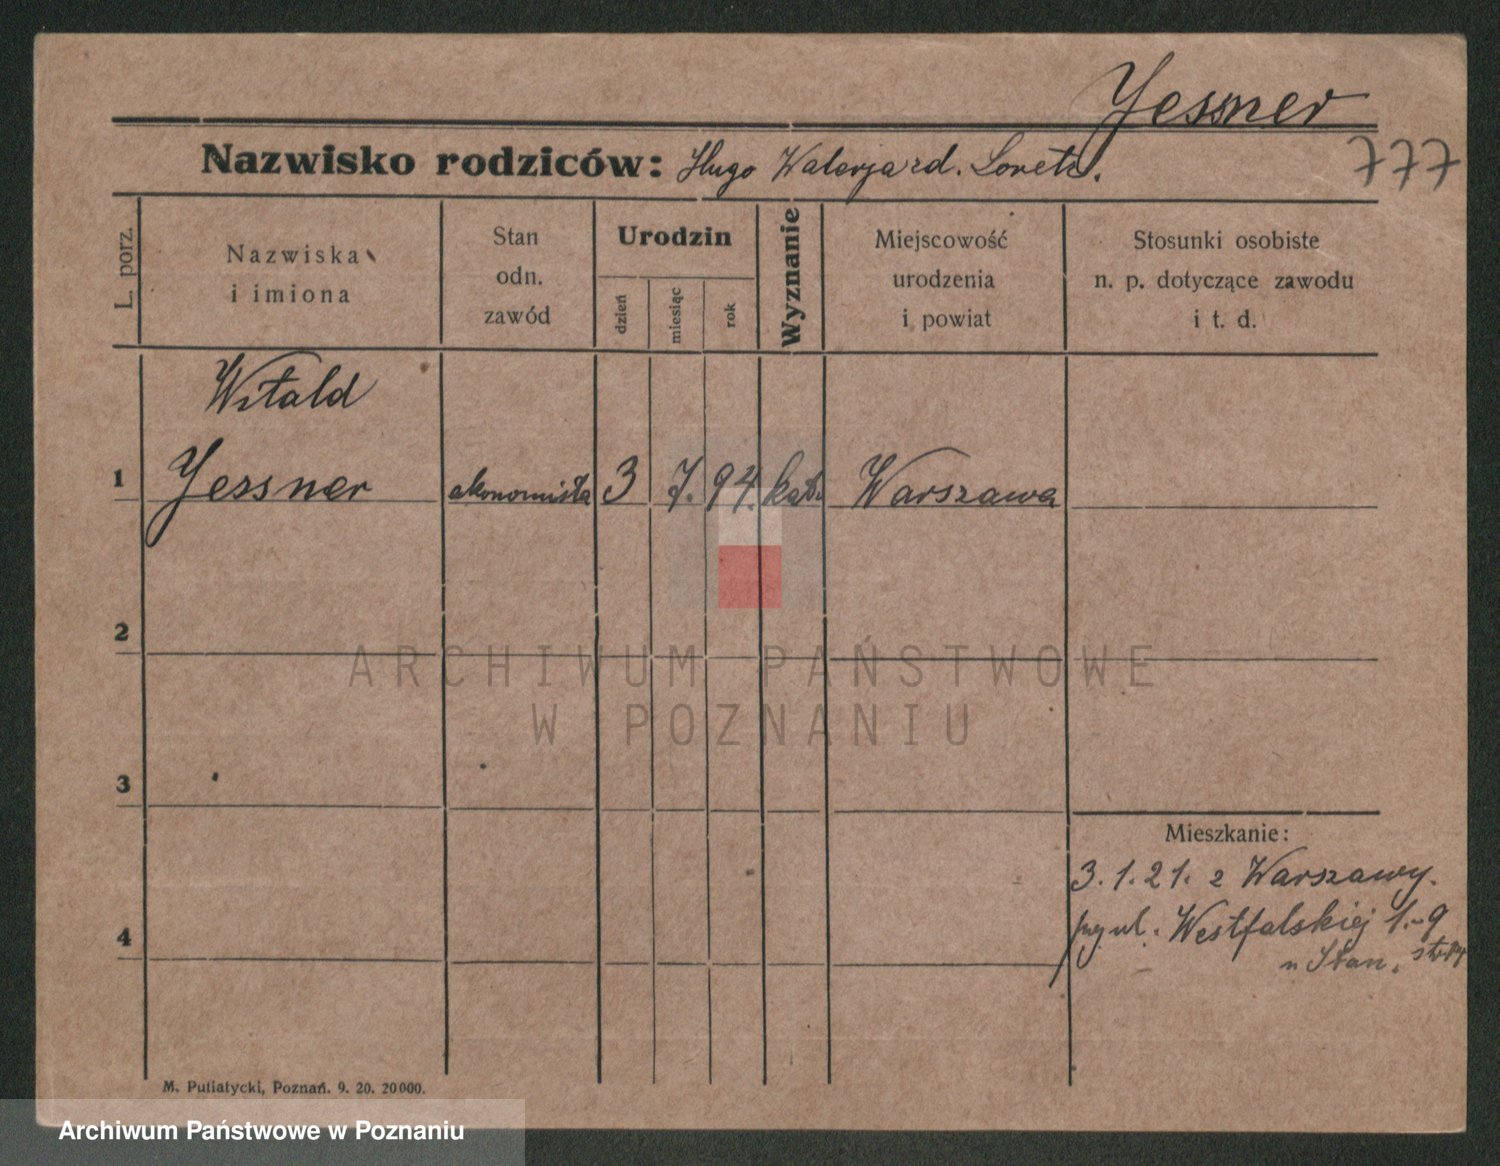 Yessner
Nazwisko rodziców: Hugo Walerja zd. Loretz.
777
L. porz.
Nazwiska
i imiona
Stan
odn.
zawód
Urodzin
dzień
miesiąc
rok
Wyznanie
Miejscowość
urodzenia
i powiat
Stosunki osobiste
n. p. dotyczące zawodu
i t. d.
Witald
1 Yessner ekonomista 3 7. 94. kat. Warszawa
2
ARCHIWUM PAŃSTWOWE
W POZNANIU
3
Mieszkanie:
3.1.21. z Warszawy.
ul. Westfalskiej 1.-9
4
u Stan.
M. Putiatycki, Poznań. 9. 20. 20000.
Archiwum Państwowe w Poznaniu